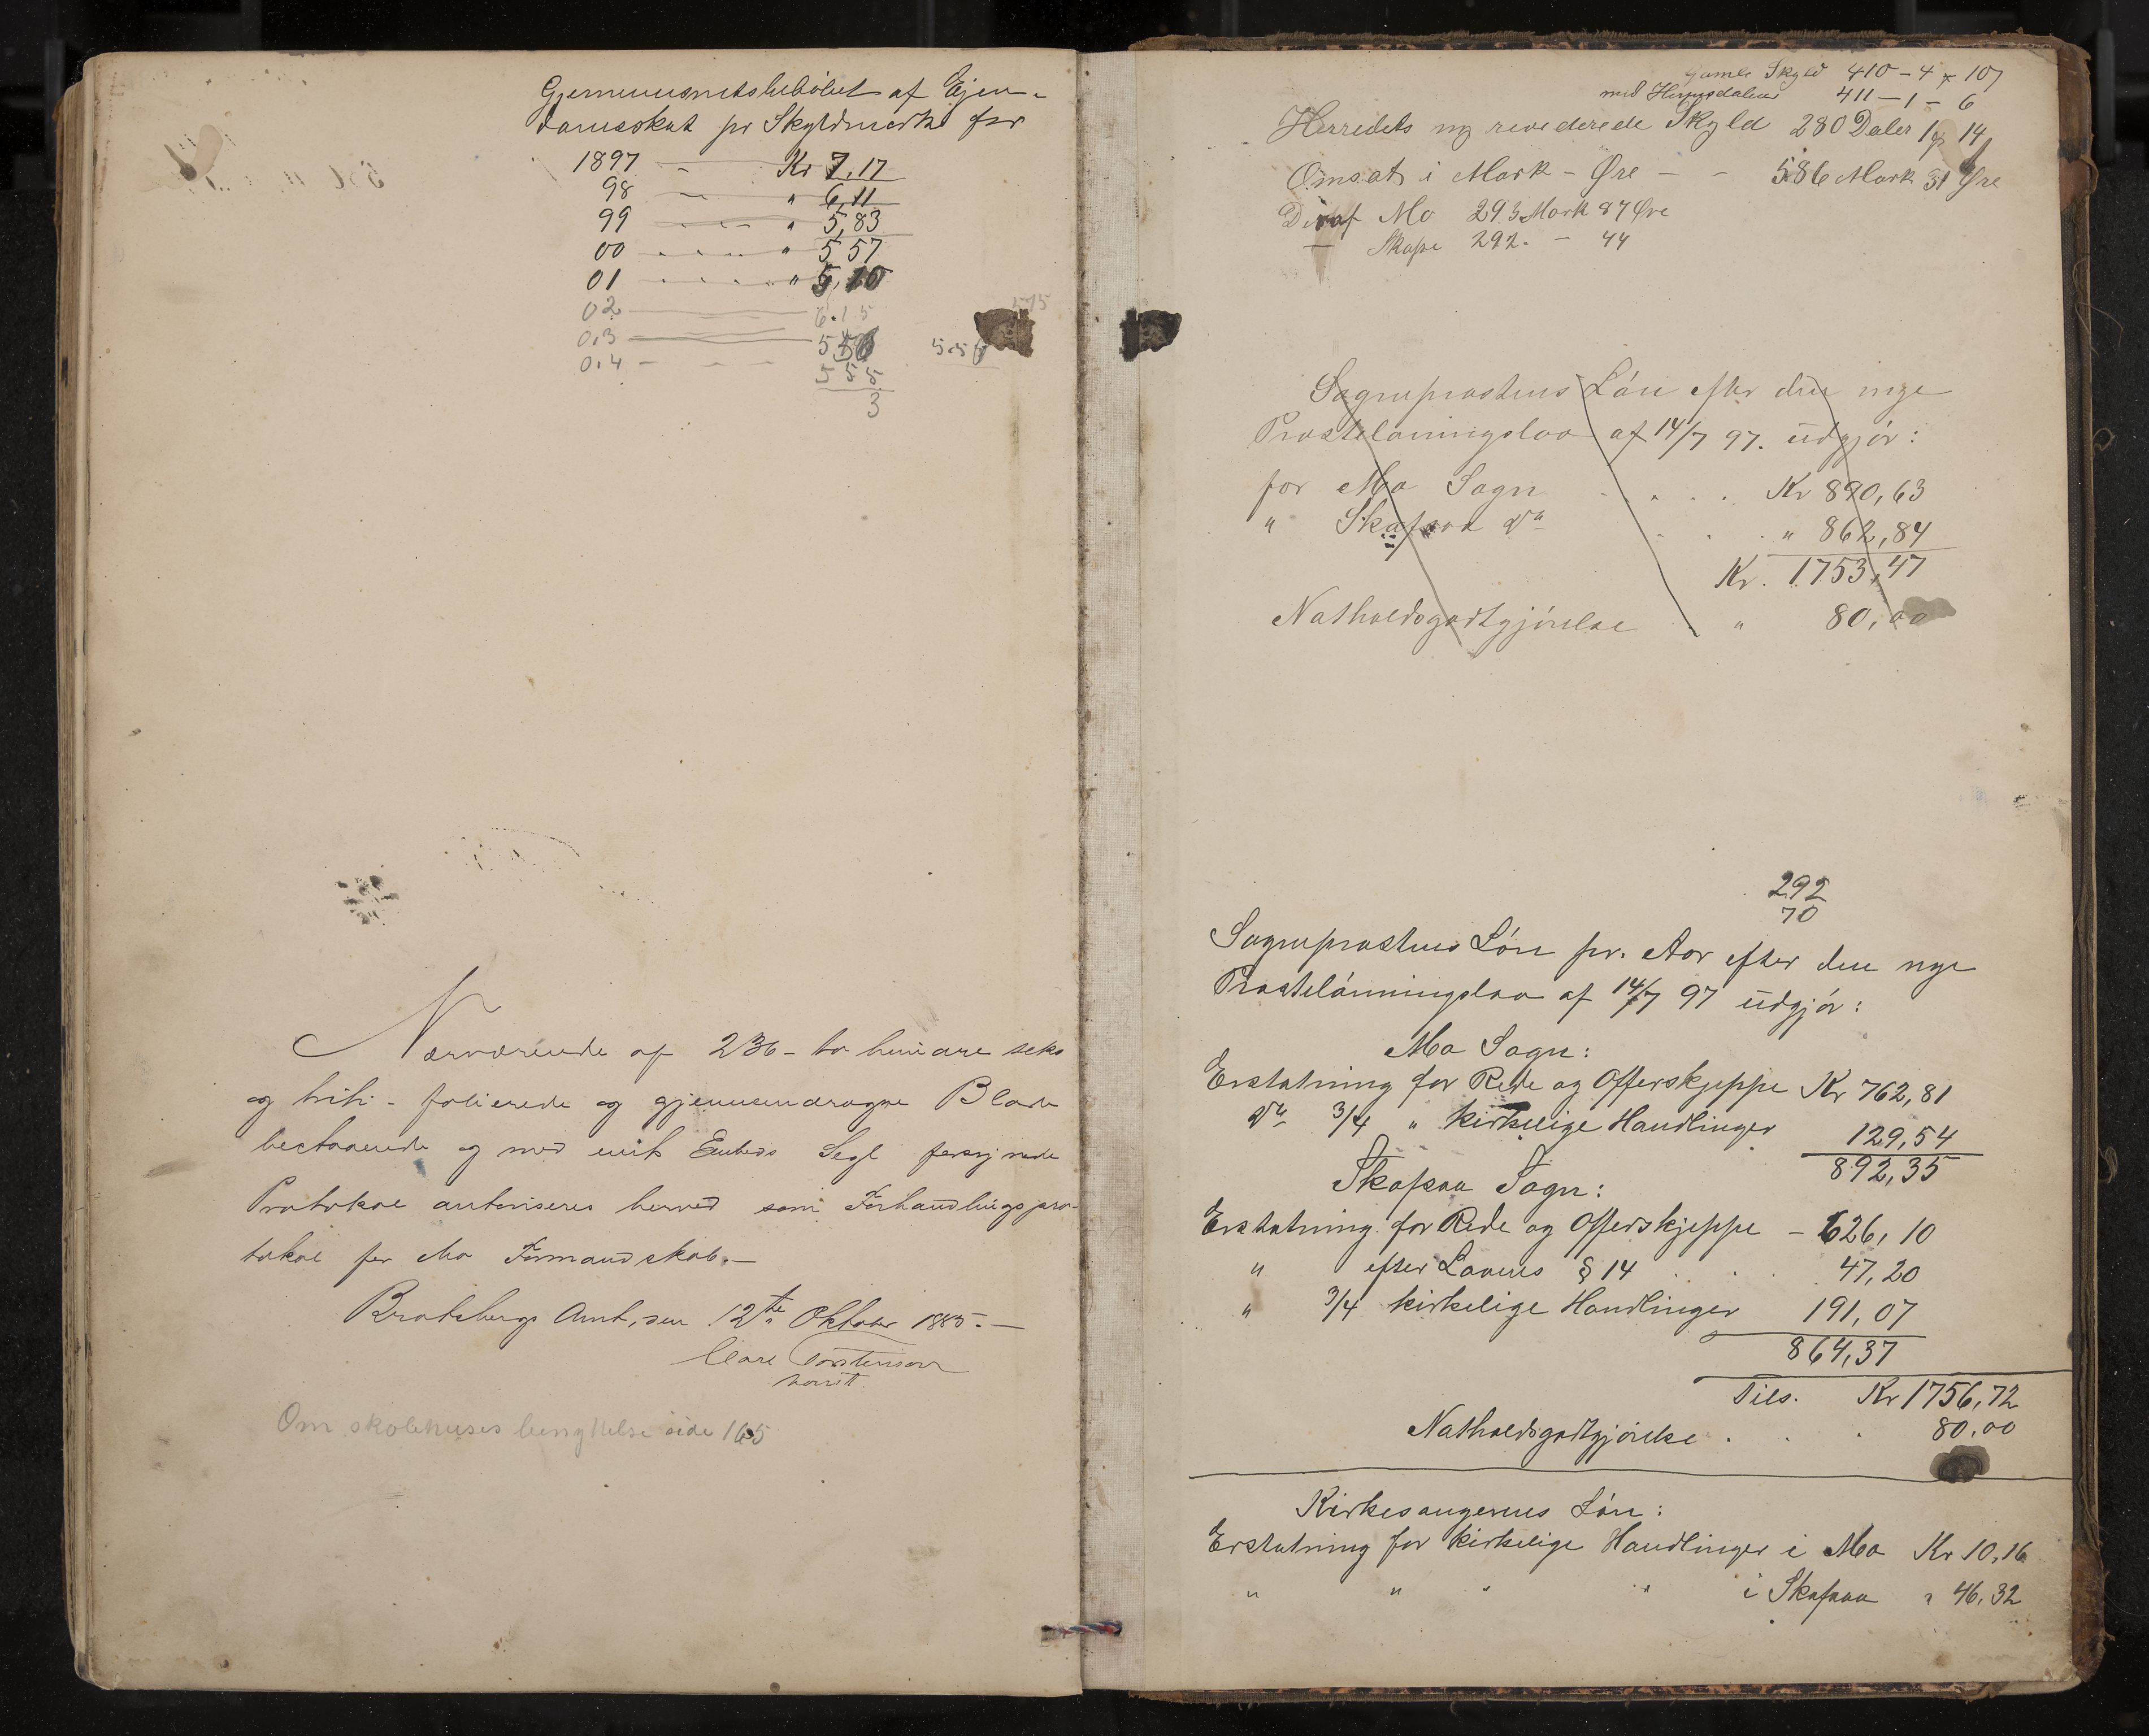 Gjennemsnitsbeløbet af Ejen-
domsskat pr Skyldmark for
1897 — Kr 7,17
98 — " 6,11
99 — " 5,83
00 — " 5 57
01 — " 5,10
02 — 6.15
03 — 5
5.5
04 — 5 5 5
3
Nærværende af 236 - to hundre seks
og triti - folierede og gjennemdragne Blade
bestaaende og med mit Embeds Segl forsynede
Protokol autoriseres herved som Forhandlingspro-
tokol for Mo Formandskab. —
Bratsberg Amt, den 12te Oktober 1885. —
Carl Torstenson
const.
Om skolehuses benyttelse side 165
Gamle Skyld 410 - 4 - 107
med 411 - 1 - 6
Herredets ny reviderede Skyld 280 Daler 1 14
Omsat i Mark - Øre - - 586 Mark 31 Øre
Deraf Mo 293 Mark 87 Øre
Skafse 292 - 44
Sogneprestens Løn efter den nye
Prestelønningslov af 14/7 97. udgjør:
for Mo Sogn . . . . Kr 890,63
" Skafsaa do . . . " 862,84
Kr. 1753,47
Natholdsgodtgjørelse . " 80,00
292
70
Sogneprestens Løn pr. Aar efter den nye
Prestelønningslov af 14/7 97 udgjør:
Mo Sogn:
Erstatning for Rede og Offerskjeppe Kr 762,81
do 3/4 " kirkelige Handlinger 129,54
892,35
Skafsaa Sogn:
Erstatning for Rede og Offerskjeppe - 626,10
" efter Lovens § 14 . . . 47,20
" 3/4 kirkelige Handlinger 191,07
864,37
Tils. Kr 1756,72
Natholdsgodtgjørelse . . . 80,00
Kirkesangerens Løn:
Erstatning for kirkelige Handlinger i Mo Kr 10,16
" " " " i Skafsaa " 46,32